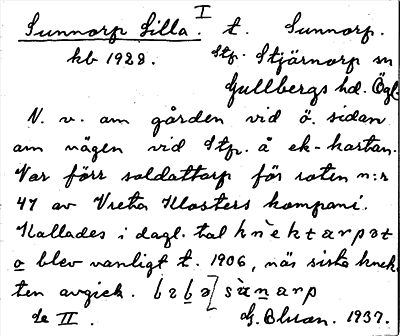 Sunnorp Lilla. I t. Sunnorp.
kb 1928. Stp. Stjärnorp sn
Gullbergs hd. Ögl.
N. v. om gården vid ö. sidan
om vägen vid Stp. å ek-kartan.
Var förr soldattorp för roten n:r
47 av Vreta Klosters kompani.
Kallades i dagl. tal knektarpət
o blev vanligt t. 1906, när sista knek-
ten avgick. sùnarp
Se II. 1937.